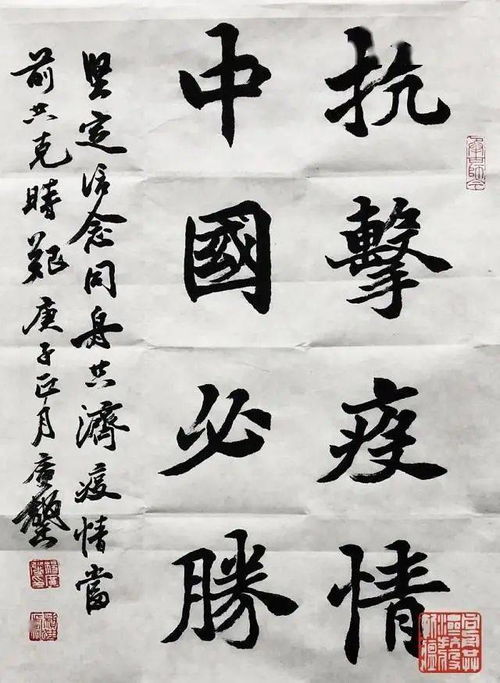 抗擊疫情
中國必勝
堅定信念同舟共濟疫情當
前共克時艱庚子正月廣